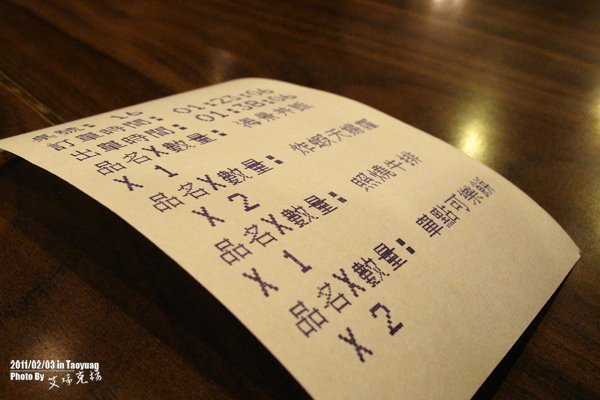 桌號: 16
訂單時間: 01:25:06
出單時間: 01:38:06
品名X數量: 海景丼飯
X 1
品名X數量: 炸蝦天婦羅
X 2
品名X數量: 照燒牛排
X 1
品名X數量: 單點可樂餅
X 2
2011/02/03 in Taoyuan
Photo By 艾瑞克